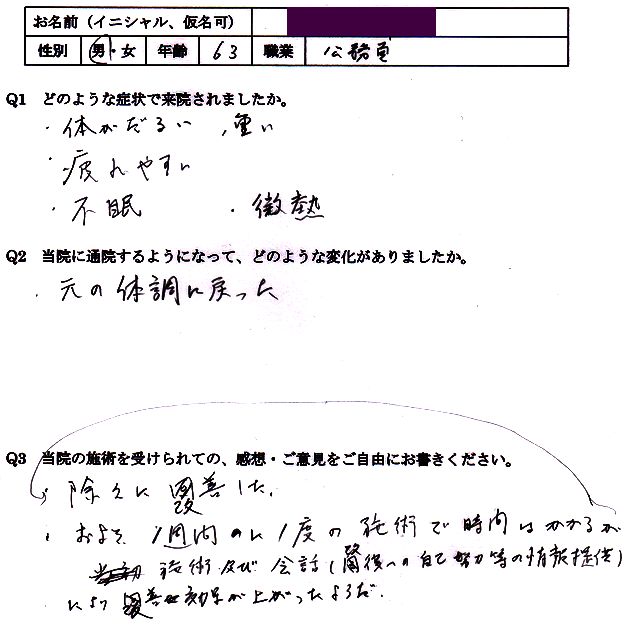 お名前（イニシャル、仮名可）
性別 男・女 年齢 63 職業 公務員
Q1 どのような症状で来院されましたか。
・体がだるい、重い
・疲れやすい
・不眠 ・微熱
Q2 当院に通院するようになって、どのような変化がありましたか。
・元の体調に戻った
Q3 当院の施術を受けられての、感想・ご意見をご自由にお書きください。
・除々に改善した
・およそ1週間のに1度の施術で時間はかかるが
施術及び会話(今後への自己努力等の情報提供)
により改善効果が上がったようだ.